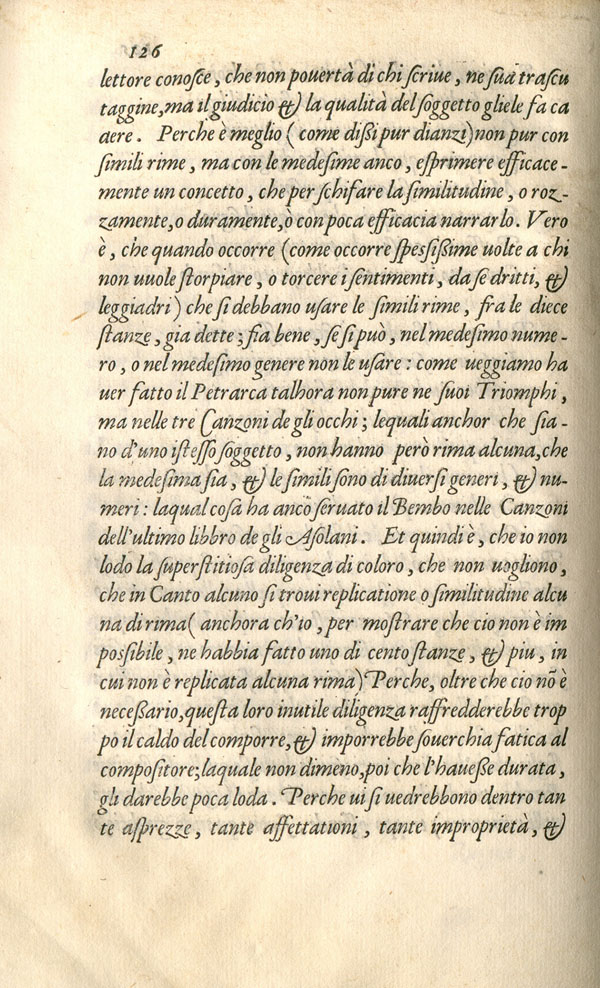 126
lettore conosce, che non pouertà di chi scriue, ne sua trascu
taggine, ma il giudicio & la qualità del soggetto gliele fa ca
dere. Perche è meglio (come dißi pur dianzi) non pur con
simili rime, ma con le medesime anco, esprimere efficace-
mente un concetto, che per schifare la similitudine, o roz-
zamente, o duramente, ò con poca efficacia narrarlo. Vero
è, che quando occorre (come occorre speßißime uolte a chi
non uuole storpiare, o torcere i sentimenti, da se dritti, &
leggiadri) che si debbano usare le simili rime, fra le diece
stanze, gia dette; fia bene, se si può, nel medesimo nume-
ro, o nel medesimo genere non le usare: come ueggiamo ha
uer fatto il Petrarca talhora non pure ne suoi Triomphi,
ma nelle tre Canzoni de gli occhi; lequali anchor che sia-
no d'uno istesso soggetto, non hanno però rima alcuna, che
la medesima sia, & le simili sono di diuersi generi, & nu-
meri: laqual cosa ha anco seruato il Bembo nelle Canzoni
dell'ultimo libbro de gli Asolani. Et quindi è, che io non
lodo la superstitiosa diligenza di coloro, che non uogliono,
che in Canto alcuno si troui replicatione o similitudine alcu
na di rima (anchora ch'io, per mostrare che cio non è im
possibile, ne habbia fatto uno di cento stanze, & piu, in
cui non è replicata alcuna rima) Perche, oltre che cio nõ è
neceßario, questa loro inutile diligenza raffredderebbe trop
po il caldo del comporre, & imporrebbe souerchia fatica al
compositore; laquale non dimeno, poi che l'haueße durata,
gli darebbe poca loda. Perche ui si uedrebbono dentro tan
te asprezze, tante affettationi, tante improprietà, &